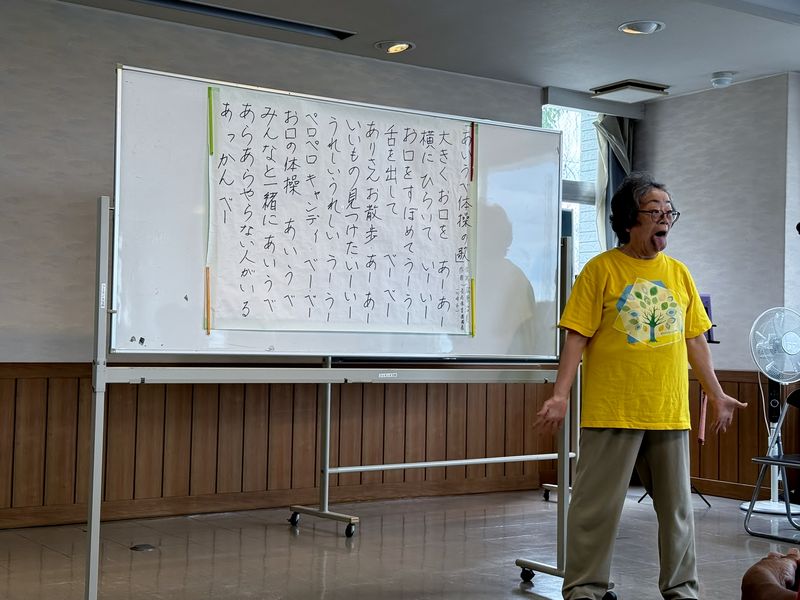 「あいうべ体操の歌」
大きくお口を　あーあー
横にひらいて　いーいー
お口をすぼめてうーうー
舌を出して　べーべー
ありさんお散歩　あーあー
いいもの見つけたいーいー
うれしいうれしい　うーうー
ペロペロキャンディ　べーべー
お口の体操　あいうべ
みんなと一緒にあいうべ
あらあらやらない人がいる
あっかんべー